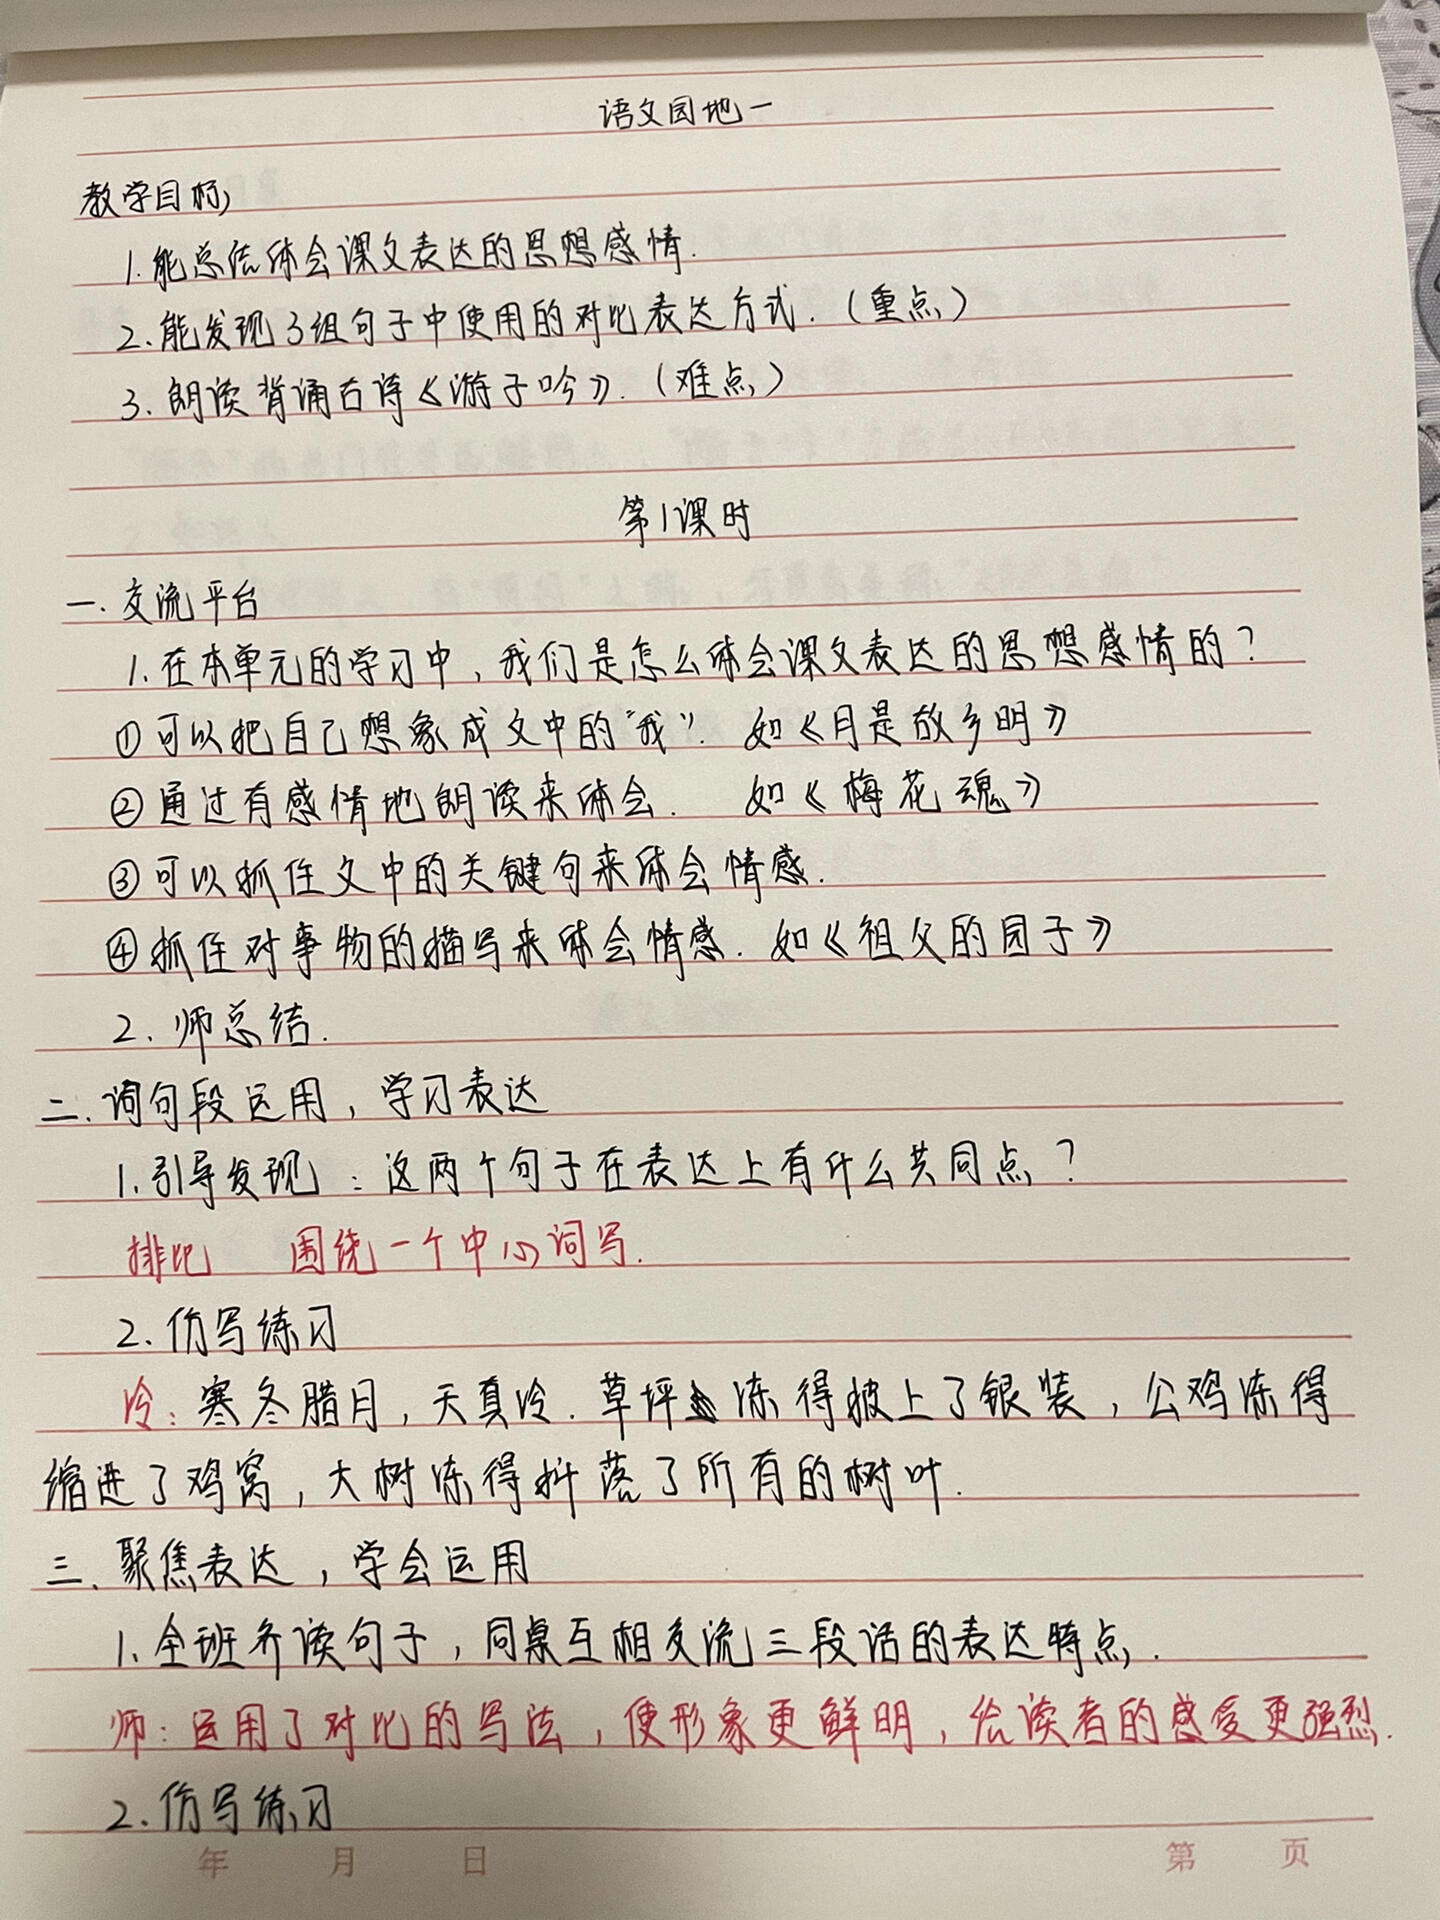 语文园地一
教学目标,
1.能总结体会课文表达的思想感情.
2.能发现3组句子中使用的对比表达方式.(重点)
3.朗读背诵古诗《游子吟》.(难点)
第1课时
一.交流平台
1.在本单元的学习中,我们是怎么体会课文表达的思想感情的?
①可以把自己想象成文中的“我”.如《月是故乡明》
②通过有感情地朗读来体会. 如《梅花魂》
③可以抓住文中的关键句来体会情感.
④抓住对事物的描写来体会情感.如《祖父的园子》
2.师总结.
二.词句段运用,学习表达
1.引导发现:这两个句子在表达上有什么共同点?
排比 围绕一个中心词写.
2.仿写练习
冷:寒冬腊月,天真冷.草坪冻得披上了银装,公鸡冻得
缩进了鸡窝,大树冻得抖落了所有的树叶.
三.聚焦表达,学会运用
1.全班齐读句子,同桌互相交流三段话的表达特点.
师:运用了对比的写法,使形象更鲜明,给读者的感受更强烈.
2.仿写练习
年 月 日 第 页